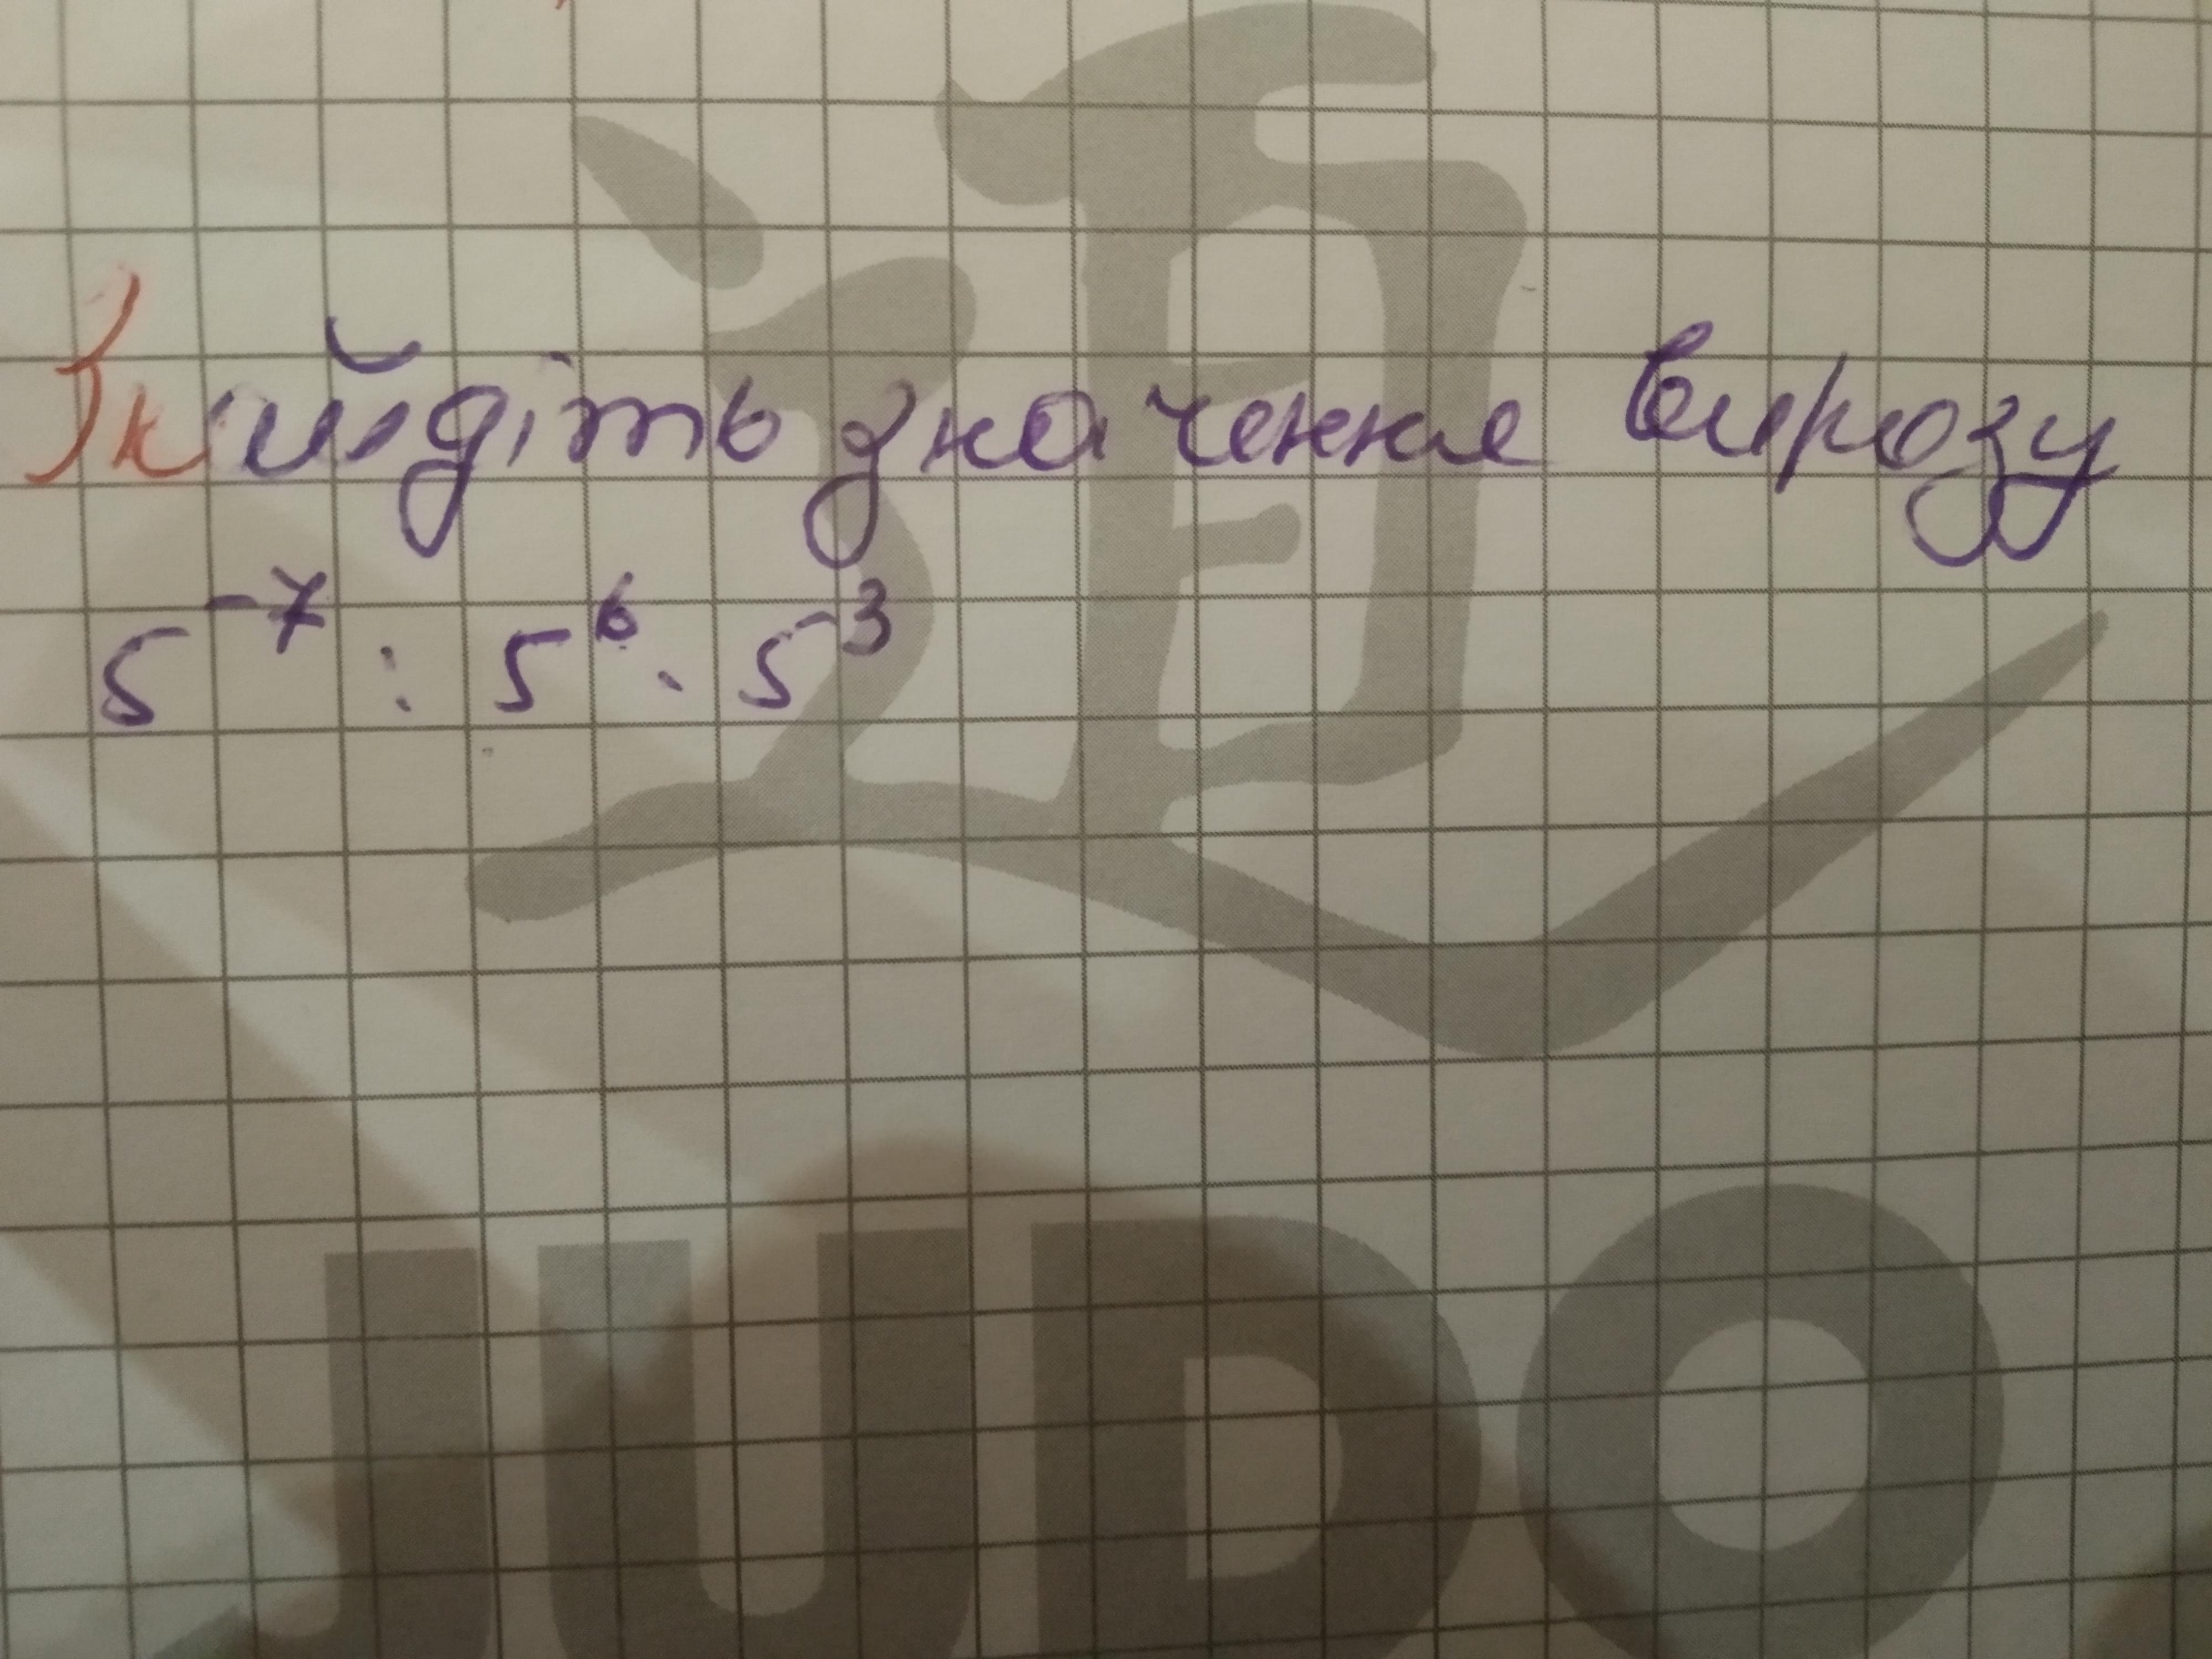 Знайдіть значення виразу
5⁻⁷ : 5⁶ · 5⁻³
道
JUDO